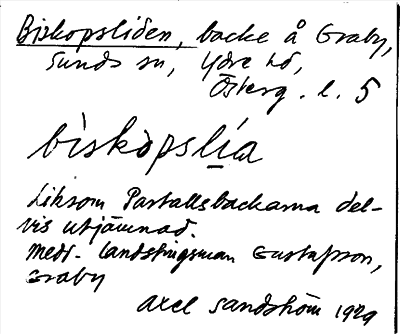 Biskopsliden, backe å Graby,
Sunds sn, Ydre hd,
Österg. l. 5
biskòpslía
Liksom Partallsbackarna del-
vis utjämnad.
Medd. landstingsman Gustafsson,
Graby
Axel Sandström 1929